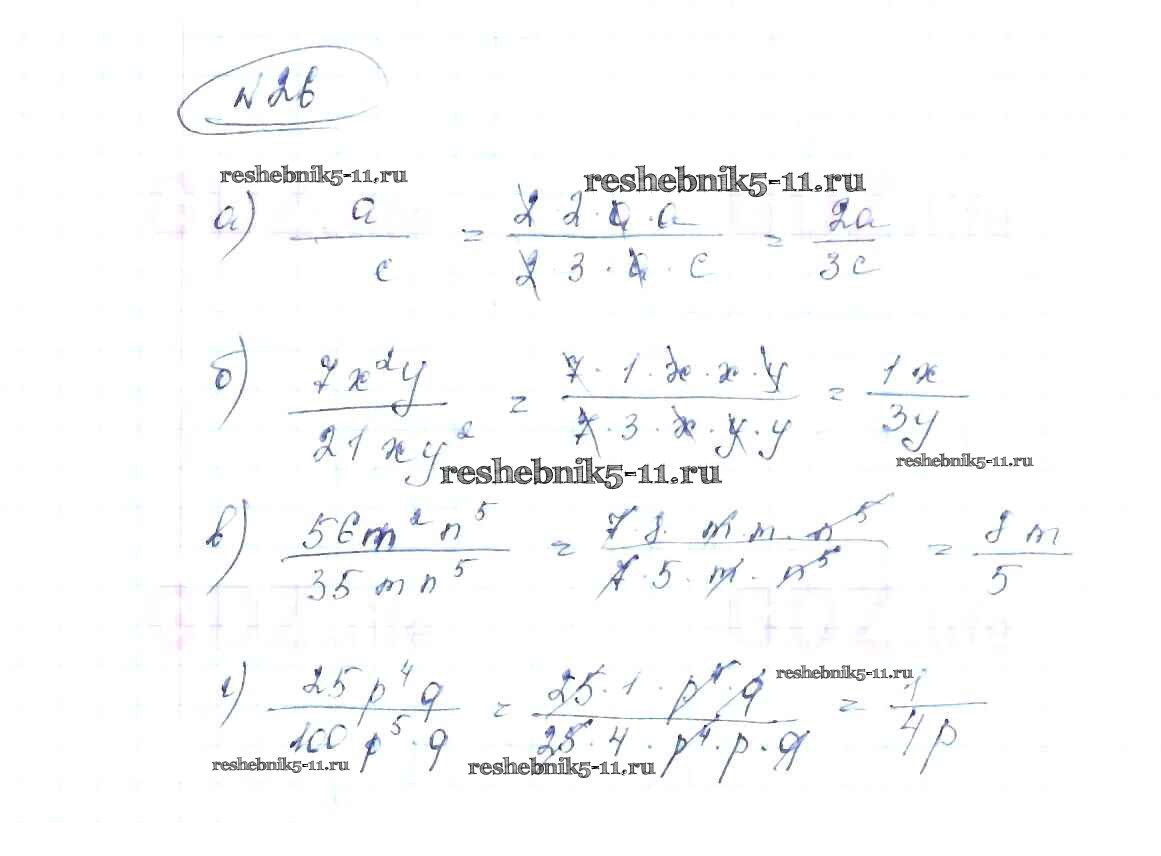 N 26
reshebnik5-11.ru reshebnik5-11.ru
а) a/c = (2·2·a·a)/(2·3·a·c) = 2a/3c
б) 7x²y/21xy² = (7·1·x·x·y)/(7·3·x·y·y) = 1x/3y
reshebnik5-11.ru
reshebnik5-11.ru
в) 56m²n⁵/35mn⁵ = (7·8·m·m·n⁵)/(7·5·m·n⁵) = 8m/5
reshebnik5-11.ru
г) 25p⁴q/100p⁵·q = (25·1·p⁴·q)/(25·4·p⁴·p·q) = 1/4p
reshebnik5-11.ru reshebnik5-11.ru